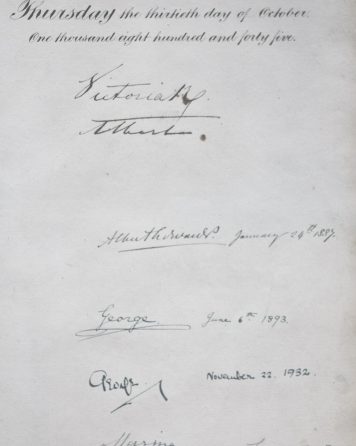 Thursday the thirtieth day of October.
One thousand eight hundred and forty five.
Victoria R.
Albert
Albert Edward P. January 24th 1887.
George June 6th 1893.
George November 22. 1932.